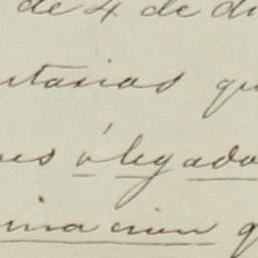 de 4 de di
ntarias qu
es ó legado
inacion q